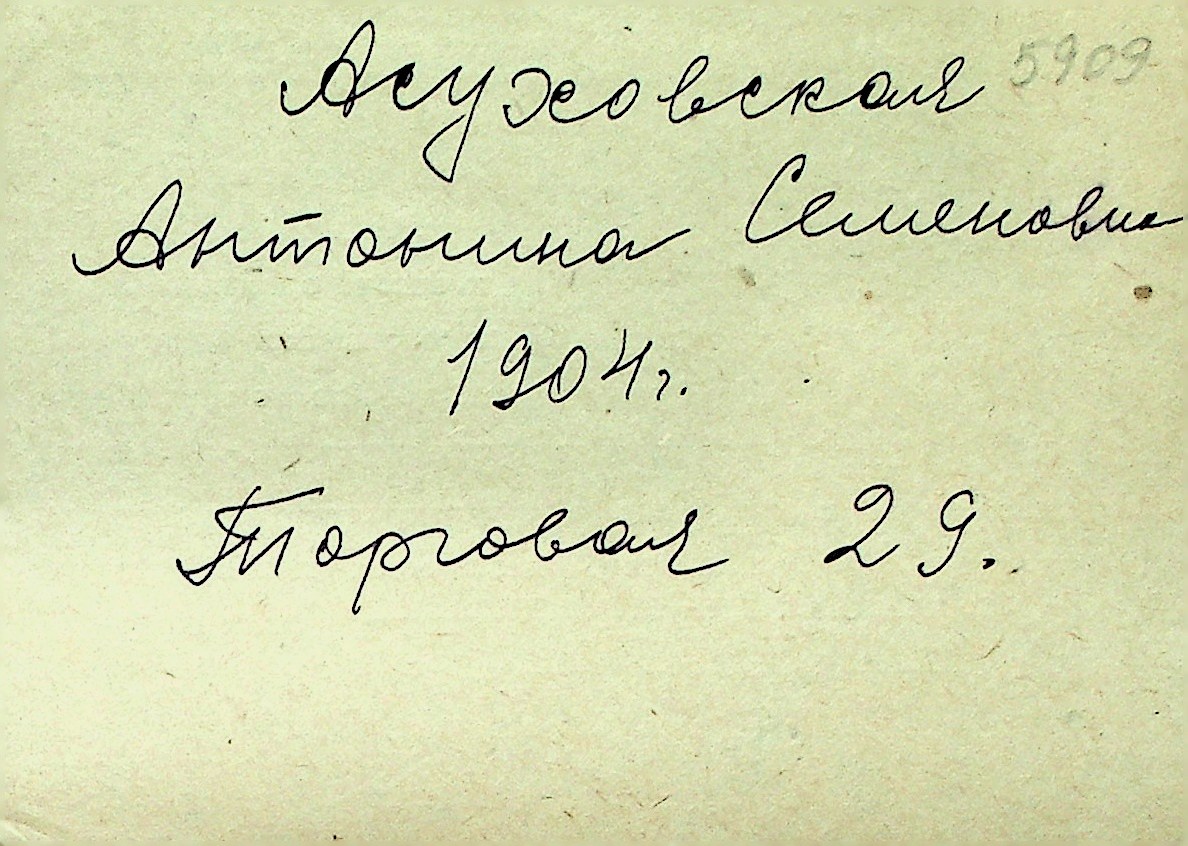 Асуховская 5909
Антонина Семеновна
1904 г.
Торговая 29.